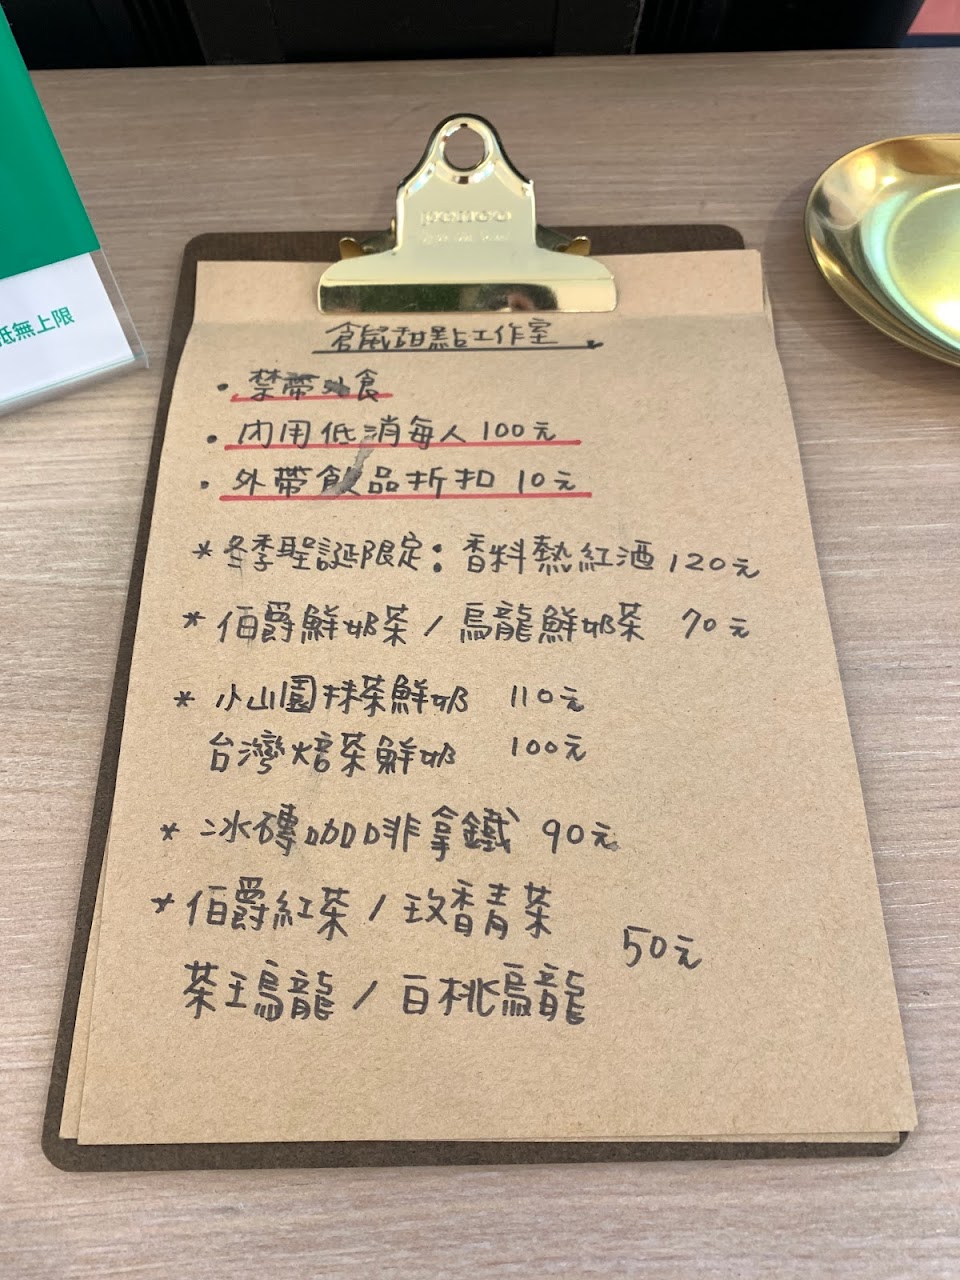 抵無上限
penco
倉鼠甜點工作室
· 禁帶外食
· 內用低消每人100元
· 外帶飲品折扣 10元
* 冬季聖誕限定：香料熱紅酒 120元
* 伯爵鮮奶茶 / 烏龍鮮奶茶 70元
* 小山園抹茶鮮奶 110元
台灣焙茶鮮奶 100元
* 冰磚咖啡拿鐵 90元
* 伯爵紅茶 / 玫香青茶
50元
茶王烏龍 / 白桃烏龍